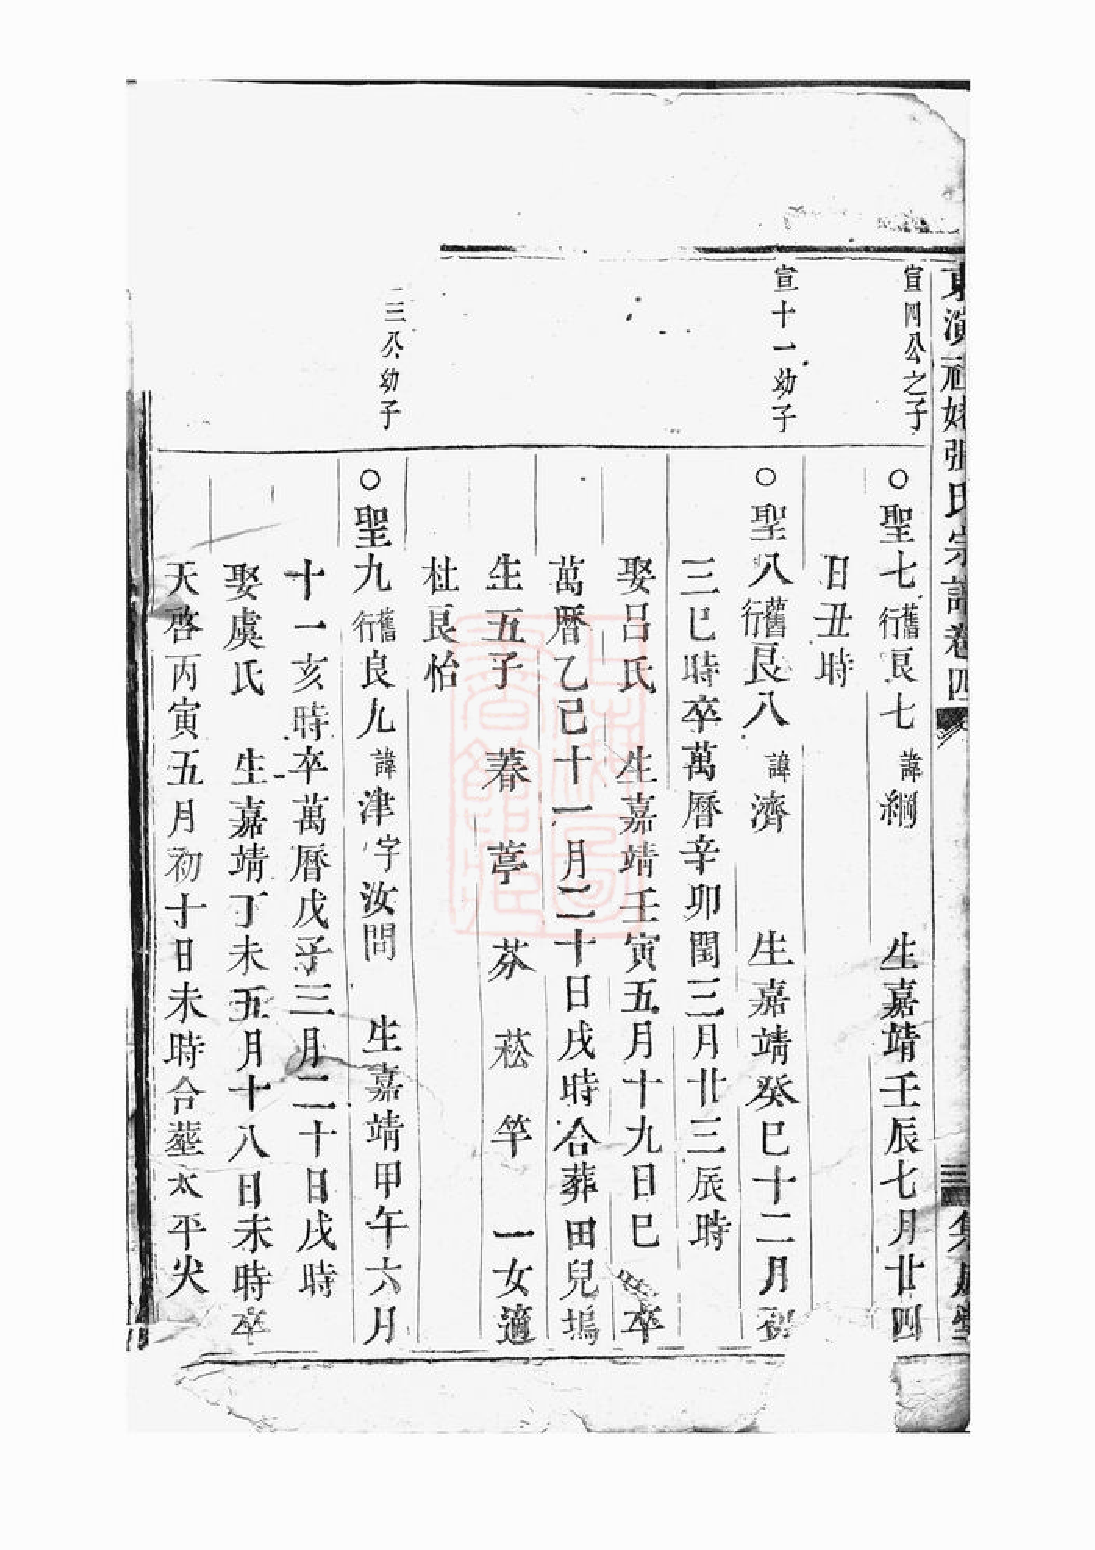 東演祖姓張氏宗譜卷四 三 集慶堂
宣四公之子
○聖七舊行良七 諱綱 生嘉靖壬辰七月廿四
日丑時
宣十一幼子
○聖八舊行良八 諱濟 生嘉靖癸巳十二月初
三巳時卒萬曆辛卯閏三月廿三辰時
娶呂氏 生嘉靖壬寅五月十九日巳時卒
萬曆乙巳十一月二十日戌時合葬田兒塢
生五子 萶 葶 芬 菘 竿 一女適
杜良怡
三公幼子
○聖九舊行良九 諱津字汝問 生嘉靖甲午六月
十一亥時卒萬曆戊子三月二十日戌時
娶虞氏 生嘉靖丁未五月十八日未時卒
天啓丙寅五月初十日未時合塟太平尖